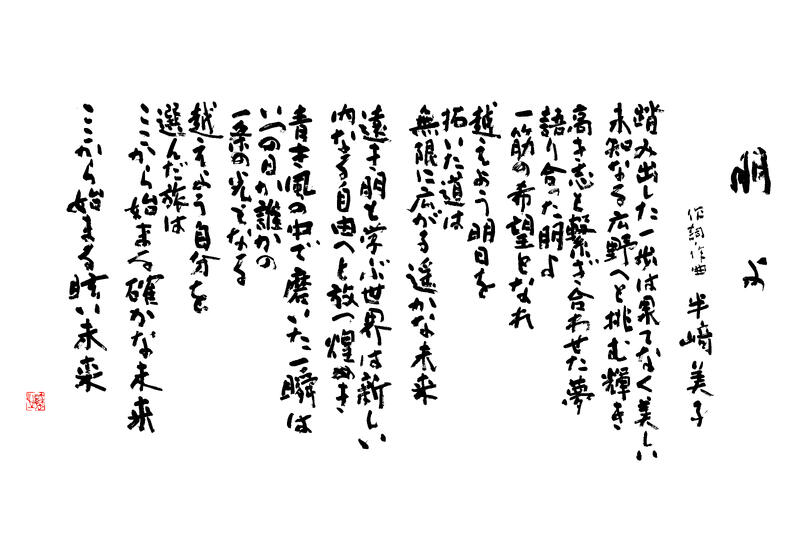 朋よ
作詞作曲 半﨑美子
踏み出した一歩は果てなく美しい
未知なる広野へと挑む輝き
高き志と繋ぎ合わせた夢
語り合った朋よ
一筋の希望となれ
越えよう明日を
拓いた道は
無限に広がる遥かな未来
遠き朋と学ぶ世界は新しい
内なる自由へと放つ煌めき
青き風の中で磨いた一瞬は
いつの日か誰かの
一条の光になる
越えよう自分を
選んだ旅は
ここから始まる確かな未来
ここから始まる眩い未来